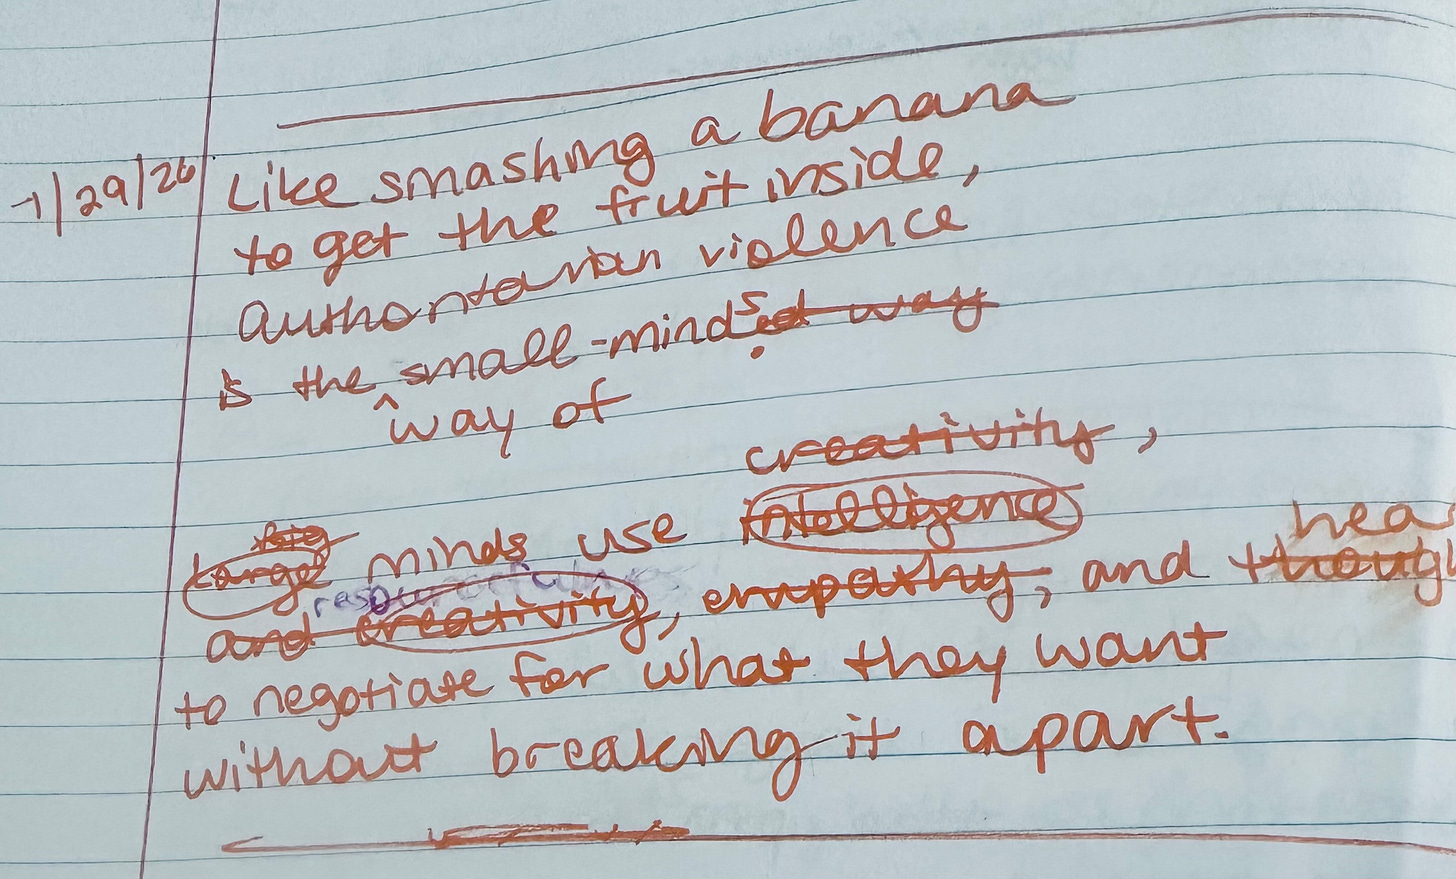 1/29/26 Like smashing a banana
to get the fruit inside,
authoritarian violence
is the small-mindsed way
^way of
.
creativity,
intelligence
big
Large minds use
hea
resourcefulness
and creativity, empathy, and though
to negotiate for what they want
without breaking it apart.